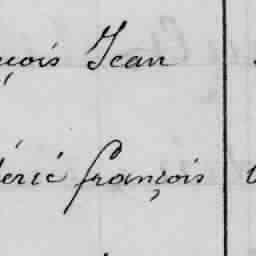 çois Jean
éric françois